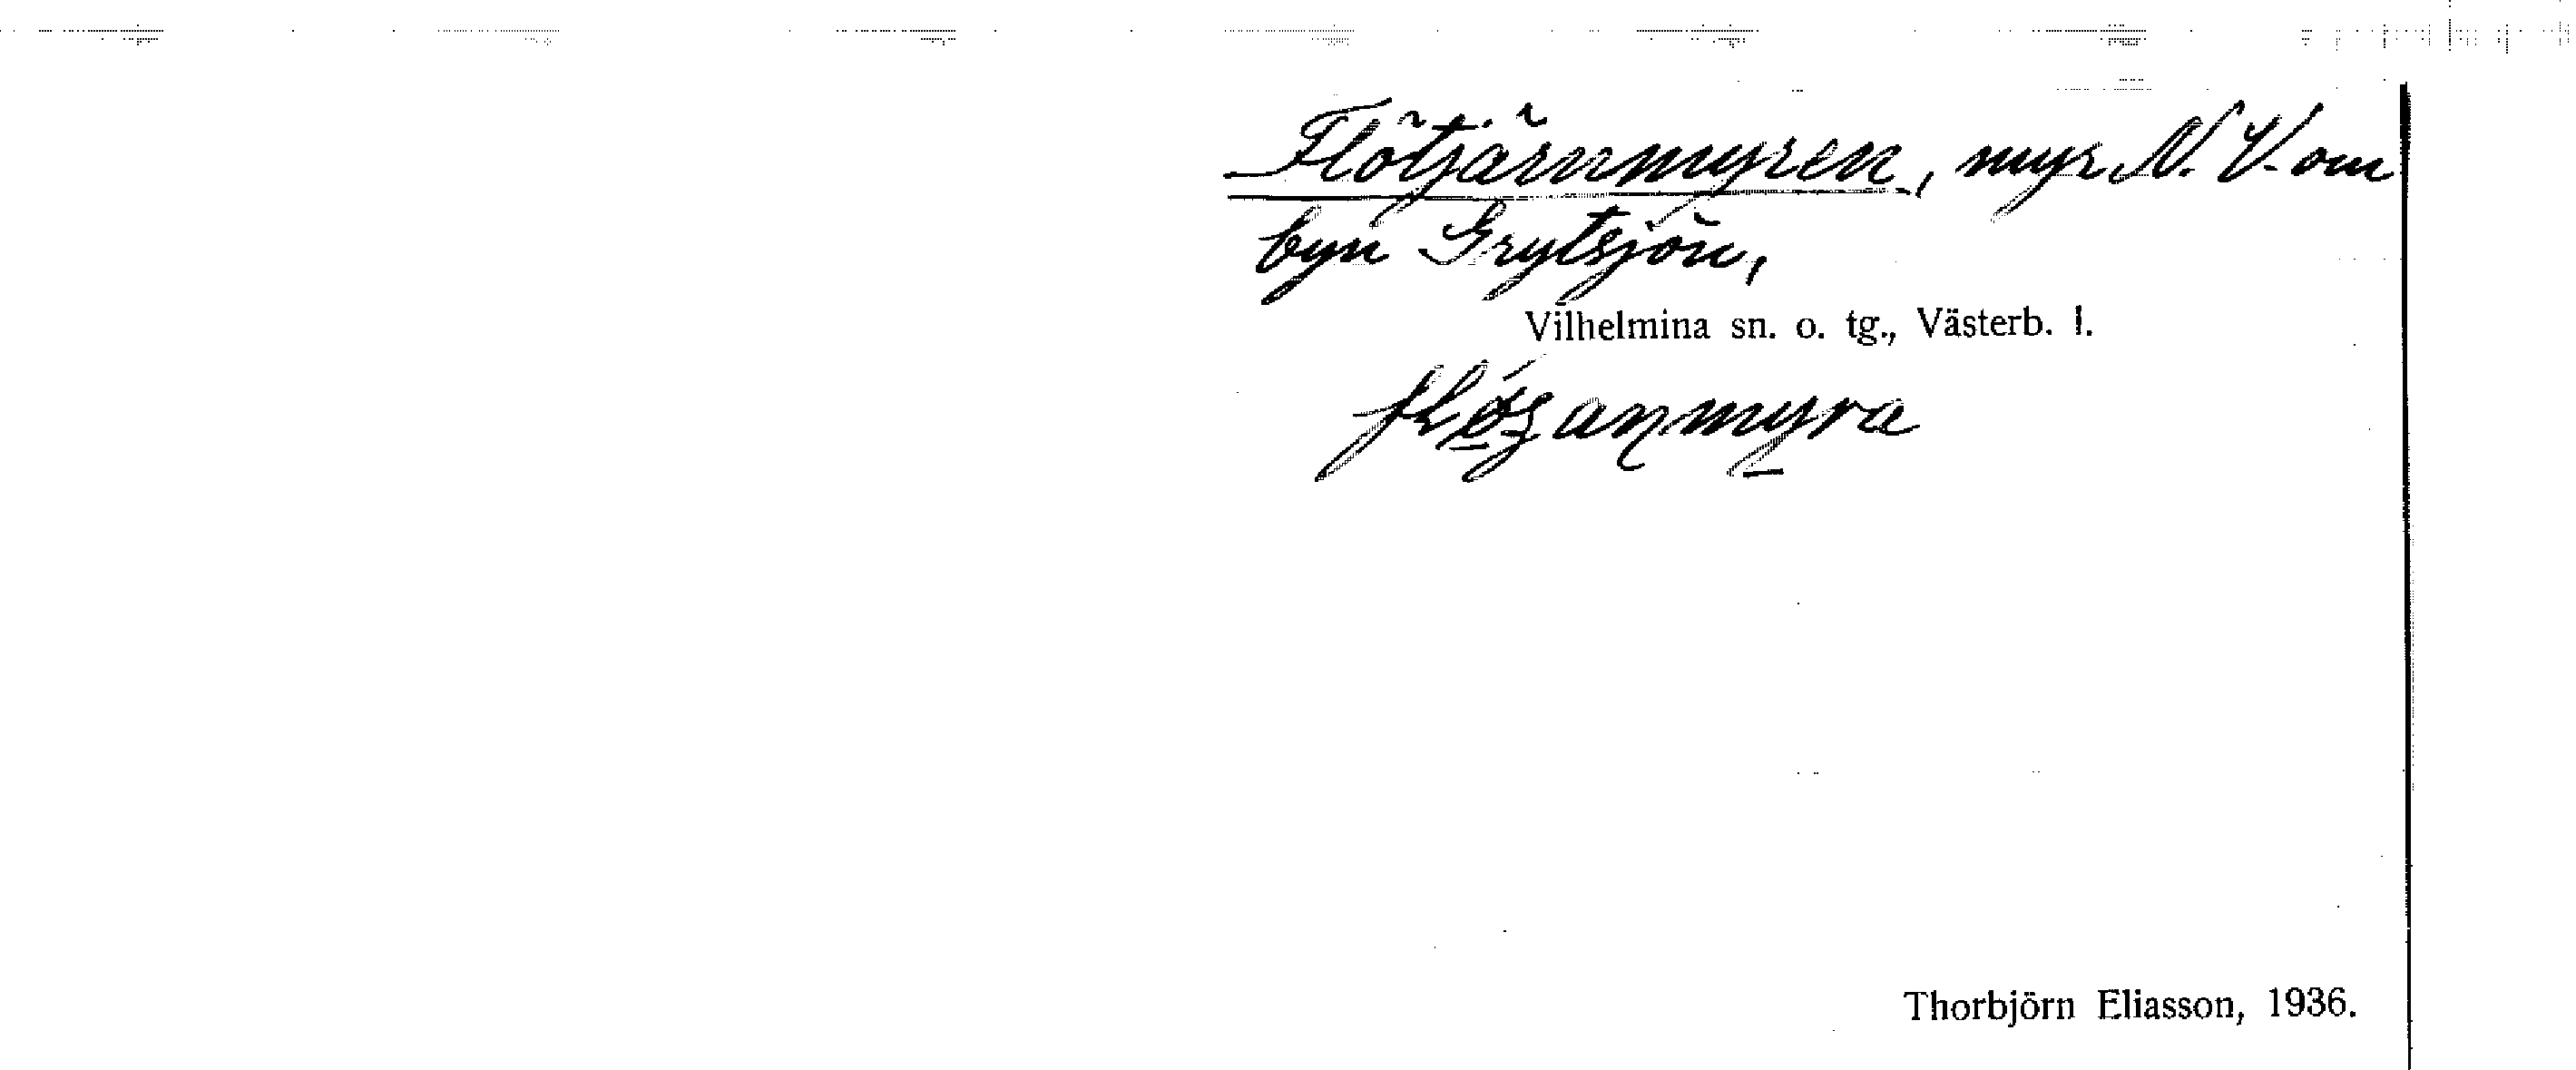 Flötjärnmyren, myr N. V. om
byn Grytsjön,
Vilhelmina sn. o. tg., Västerb. l.
Thorbjörn Eliasson, 1936.